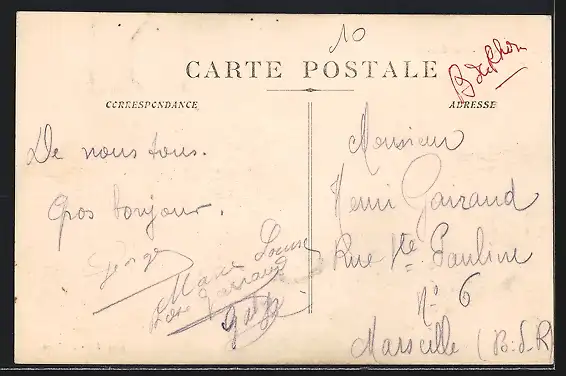 10
B de Rhon
CARTE POSTALE
CORRESPONDANCE
ADRESSE
De nous tous.
Gros bonjour.
Marie Louise
Monsieur
Henri Gairaud
Rue Ste Pauline
N° 6
Marseille (B. d. R